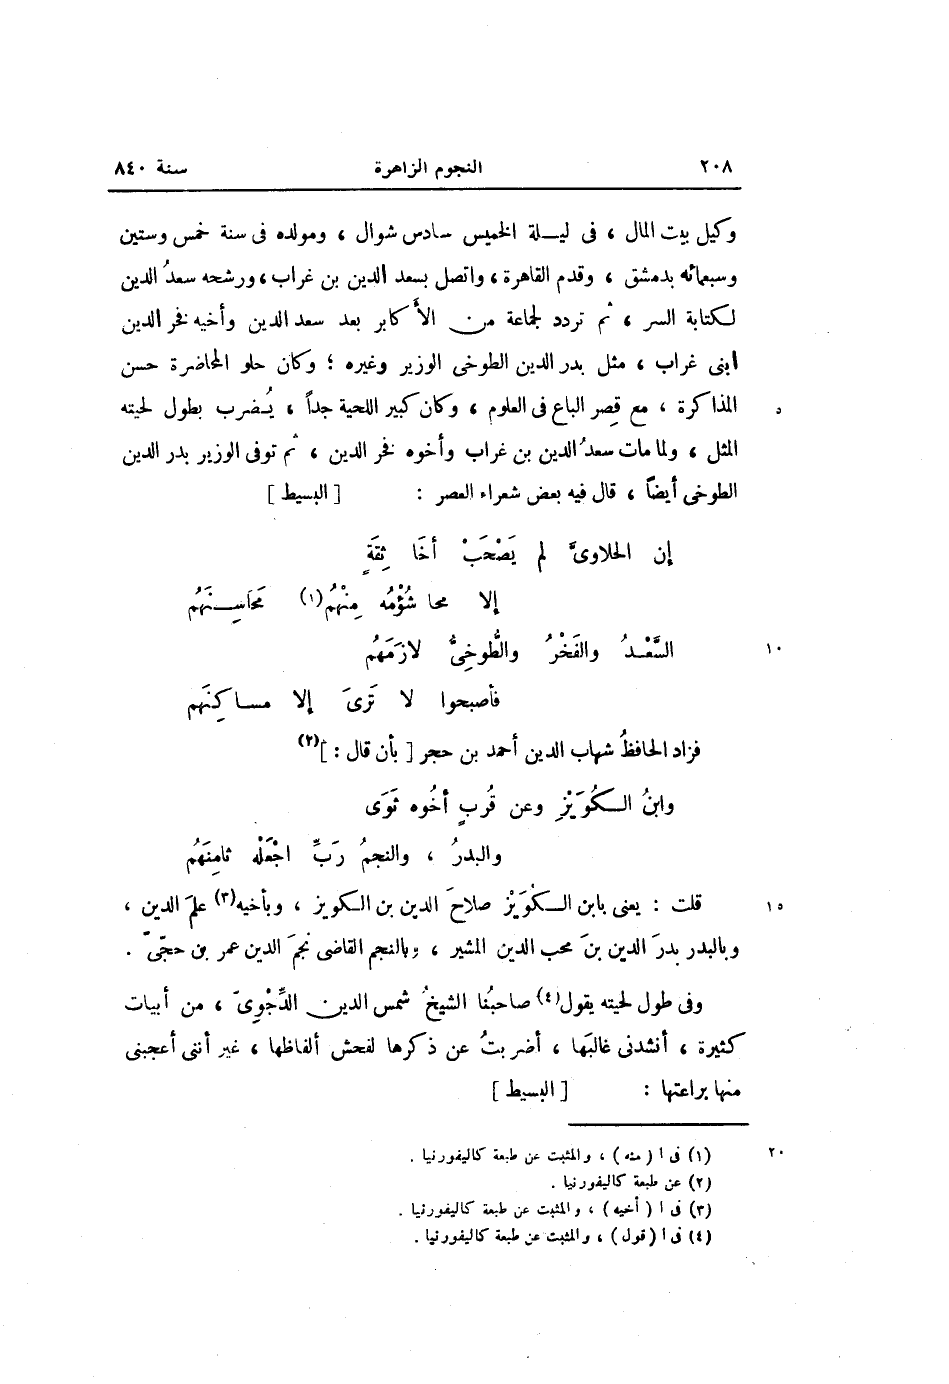 ٢٠٨ النجوم الزاهرة سنة ٨٤٠
وكيل بيت المال ، فى ليـــلة الخميس سادس شوال ، ومولده فى سنة خمس وستين
وسبعمائه بدمشق ، وقدم القاهرة ، واتصل بسعد الدين بن غراب ، ورشحه سعدُ الدين
لكتابة السر ، ثم تردد لجماعة من الأكابر بعد سعد الدين وأخيه فخر الدين
ابنى غراب ، مثل بدر الدين الطوخى الوزير وغيره ؛ وكان حلو المحاضرة حسن
المذاكرة ، مع قصر الباع فى العلوم ، وكان كبير اللحية جداً ، يُضرب بطول لحيته ٥
المثل ، ولما مات سعدُ الدين بن غراب وأخوه فخر الدين ، ثم توفى الوزير بدر الدين
الطوخى أيضاً ، قال فيه بعض شعراء العصر : [ البسيط ]
إن الحلاوىَّ لم يَصْحَبْ أخَا ثِقَةٍ
إلا محا شُؤْمُه مِنْهُم(١) مَحَاسِــنَهُم
السَّعْــدُ والفَخْرُ والطُّوخِىُّ لازَمَهُم ١٠
فأصبحوا لا تَرَىَ إلا مساكِنَهم
فزاد الحافظُ شهاب الدين أحمد بن حجر [ بأن قال : ](٢)
وابنُ الــكُوَيْزِ وعن قُربٍ أخُوه ثَوَى
والبدرُ ، والنجمُ رَبِّ اجْعَلْه ثامِنَهُم
قلت : يعنى بابن الــكُوَيْز صلاحَ الدين بن الكويز ، وبأخيه(٣) علمَ الدين ، ١٥
وبالبدر بدرَ الدين بنَ محب الدين المشير ، وبالنجم القاضى نجمَ الدين عمر بن حجّىّ .
وفى طول لحيته يقول(٤) صاحبُنا الشيخُ شمس الدين الدِّجْوِىّ ، من أبيات
كثيرة ، أنشدنى غالبَها ، أضربتُ عن ذكرها لفحش ألفاظها ، غير أننى أعجبنى
منها براعتها : [ البسيط ]
(١) فى ا ( منه ) ، والمثبت عن طبعة كاليفورنيا . ٢٠
(٢) عن طبعة كاليفورنيا .
(٣) فى ا ( أخيه ) ، والمثبت عن طبعة كاليفورنيا .
(٤) فى ا ( قول ) ، والمثبت عن طبعة كاليفورنيا .